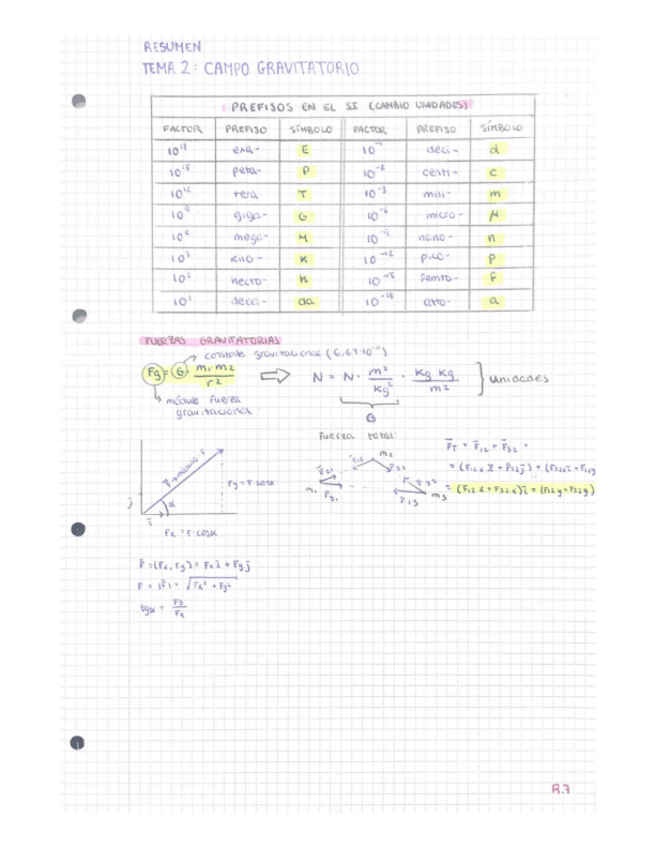 RESUMEN
TEMA 2: CAMPO GRAVITATORIO
PREFIJOS EN EL SI (CAMBIO UNIDADES)
FACTOR PREFIJO SÍMBOLO FACTOR PREFIJO SÍMBOLO
10¹⁸ exa- E 10⁻¹ deci- d
10¹⁵ peta- P 10⁻² centi- c
10¹² tera T 10⁻³ mili- m
10⁹ giga- G 10⁻⁶ micro- μ
10⁶ mega- M 10⁻⁹ nano- n
10³ kilo- K 10⁻¹² pico- p
10² hecto- h 10⁻¹⁵ femto- f
10¹ deca- da 10⁻¹⁸ atto- a
FUERZAS GRAVITATORIAS
constante gravitacional (6,67·10⁻¹¹)
Fg = G · m₁ m₂ / r² ⇒ N = N · m² / kg² · kg kg / m² } unidades
módulo fuerza
gravitacional
G
Fuerza total
F⃗T = F⃗12 + F⃗32 =
= (F12x i⃗ + F32y j⃗) + (F32x i⃗ + F12y
= (F12x + F32x) i⃗ + (F12y + F32y)
m₂
F12
F32
F21
m₁
F31
F23
F13
m₃
F⃗ → módulo: F
Fy = F·senα
j⃗
α
i⃗
Fx = F·cosα
F⃗ = (Fx, Fy) = Fx i⃗ + Fy j⃗
F = |F⃗| = √Fx² + Fy²
tgα = Fy / Fx
R.7